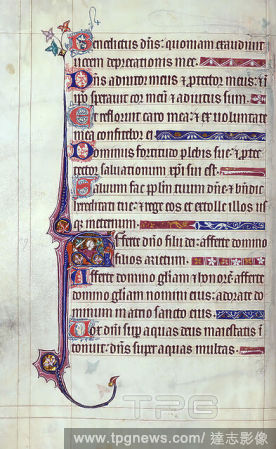 Benedictus dns: quoniam exaudiuit
uocem deprecationis mee.
Dns adiutor meus & ptector meus: & i
ipo sperauit cor meu & adiutus sum.
Et refloruit caro mea: & ex uoluntate
mea confitebor ei.
Dominus fortitudo plebis sue: & pte
ctor saluationum xpi sui est.
Saluum fac pplm tuum dne & bndic
hereditati tue: & rege eos et extolle illos us
q; in eternum.
Afferte dno filii dei: afferte domino
filios arietum.
Afferte domino gliam & honore afferte
domino gliam nomini eius: adorate do
minum in atrio sancto eius.
Vox dni sup aquas deus maiestatis i
tonuit: dns super aquas multas.
TPG
www.tpgnews.com/達志影像